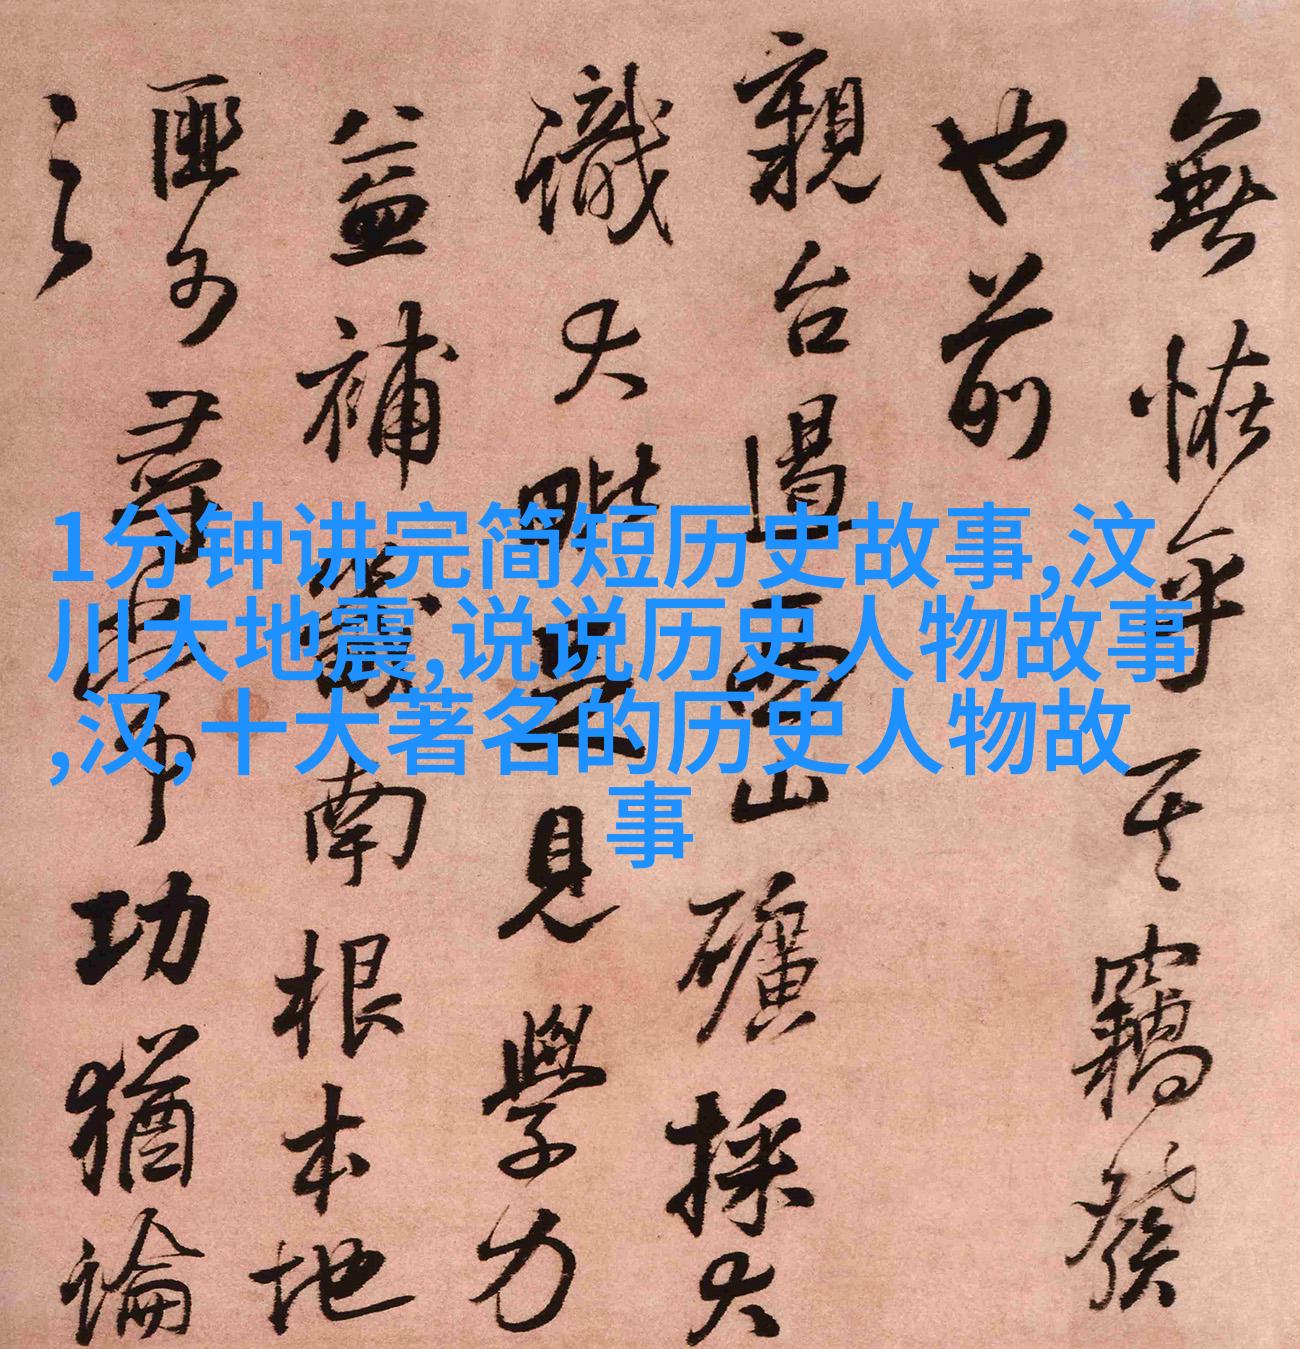 1分钟讲完简短历史故事,汶
川大地震,说说历史人物故事
,汉,十大著名的历史人物故
事
無恠乎其竊發
也前
親台山礦採大
識大見學力
益補南根本地
匪尋功猶論
之